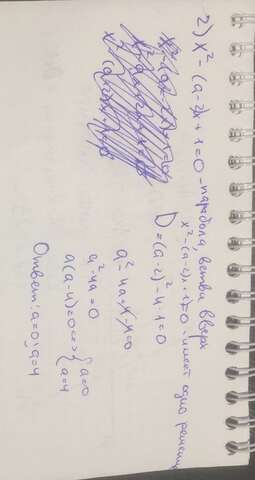 2) x² - (a-2)x + 1 = 0 - парабола, ветви вверх
x² - (a-2)x + 1 = 0 - имеет одно решение
D = (a-2)² - 4·1 = 0
a² - 4a + 4 - 4 = 0
a² - 4a = 0
a(a-4) = 0 <=> { a = 0
a = 4
Ответ: a = 0; a = 4